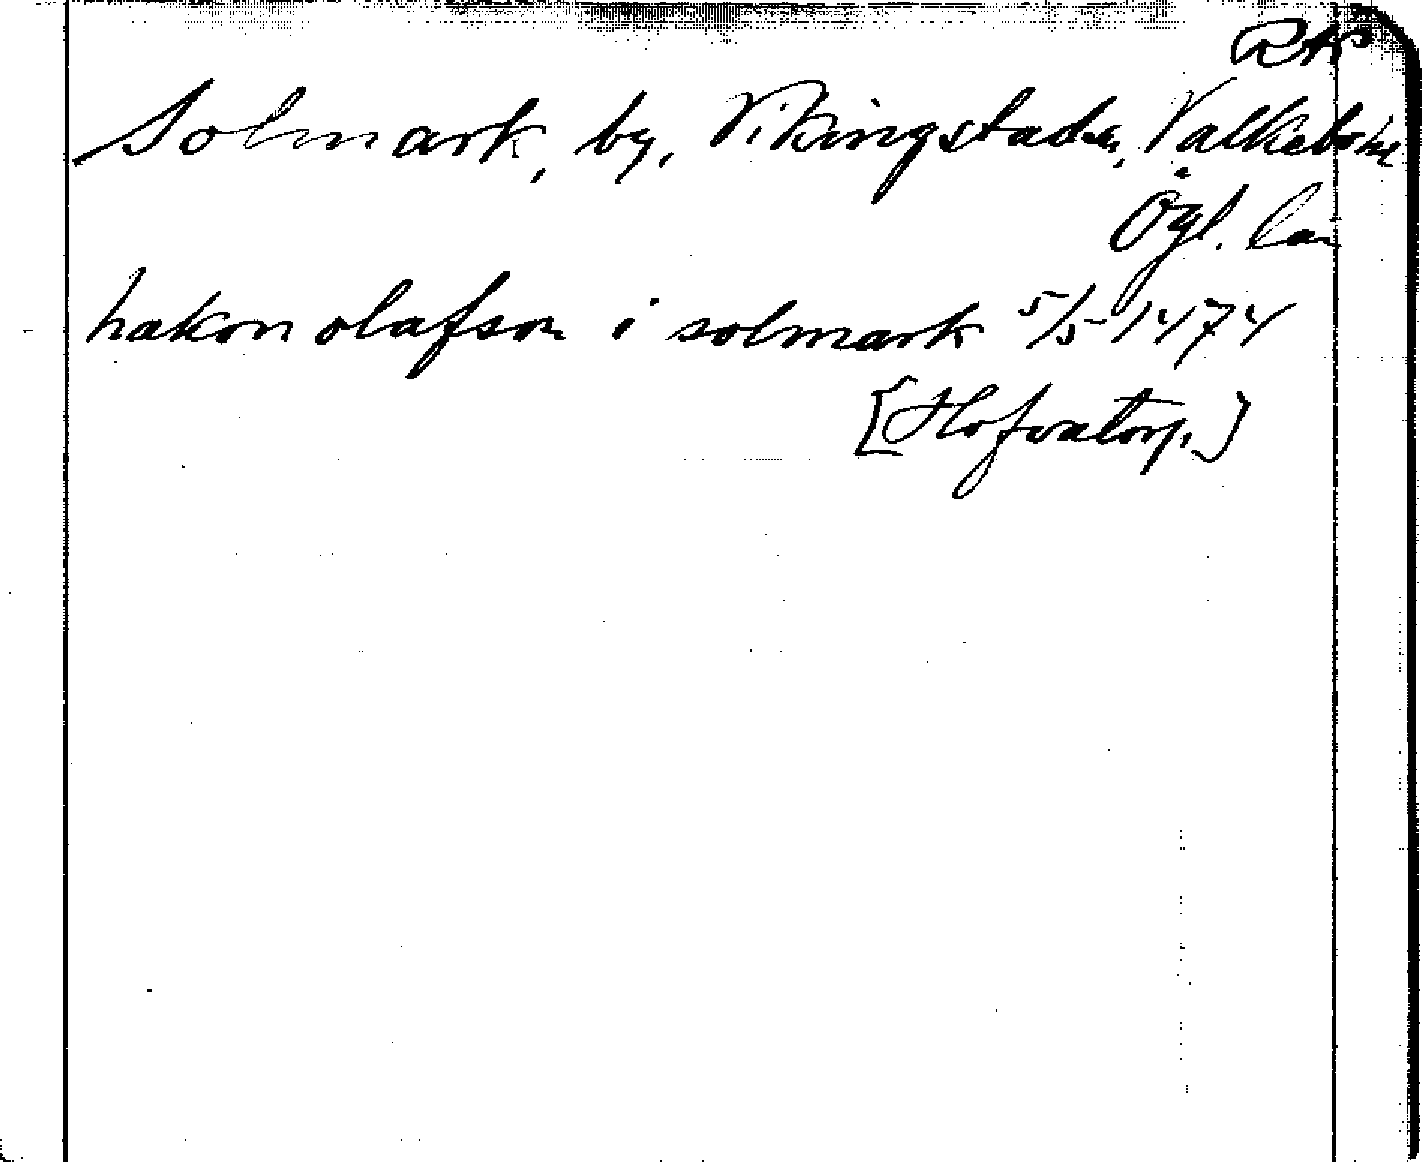 RAP
Solmark, by, Vikingstads sn, Valkebo hd
Ögl. län
hakon olafson i solmark 5/5 1474
[Hofvatorp.]